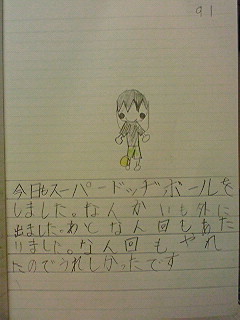 91
今日もスーパードッヂボールを
しました。な人かいも外に
出ました。あとな人回もあた
りました。な人回もやれ
たのでうれしかったです